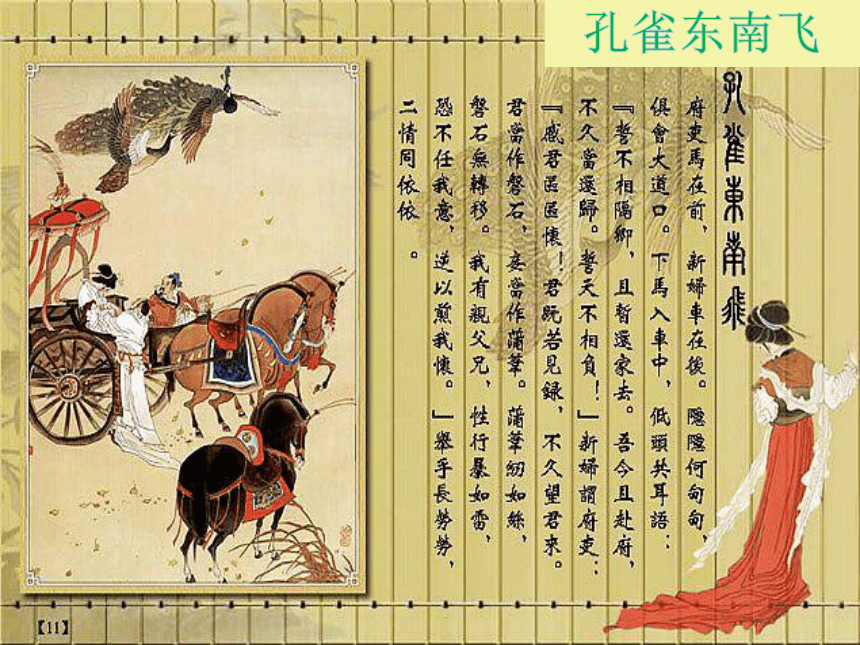 孔雀东南飞
孔雀東南飛
府吏馬在前，新婦車在後。隱隱何甸甸，
俱會大道口。下馬入車中，低頭共耳語：
『誓不相隔卿，且暫還家去。吾今且赴府，
不久當還歸。誓天不相負！」新婦謂府吏：
『感君區區懷！君既若見録，不久望君來。
君當作磐石，妾當作蒲葦。蒲葦紉如絲，
磐石無轉移。我有親父兄，性行暴如雷，
恐不任我意，逆以煎我懷。」舉手長勞勞，
二情同依依。
【11】